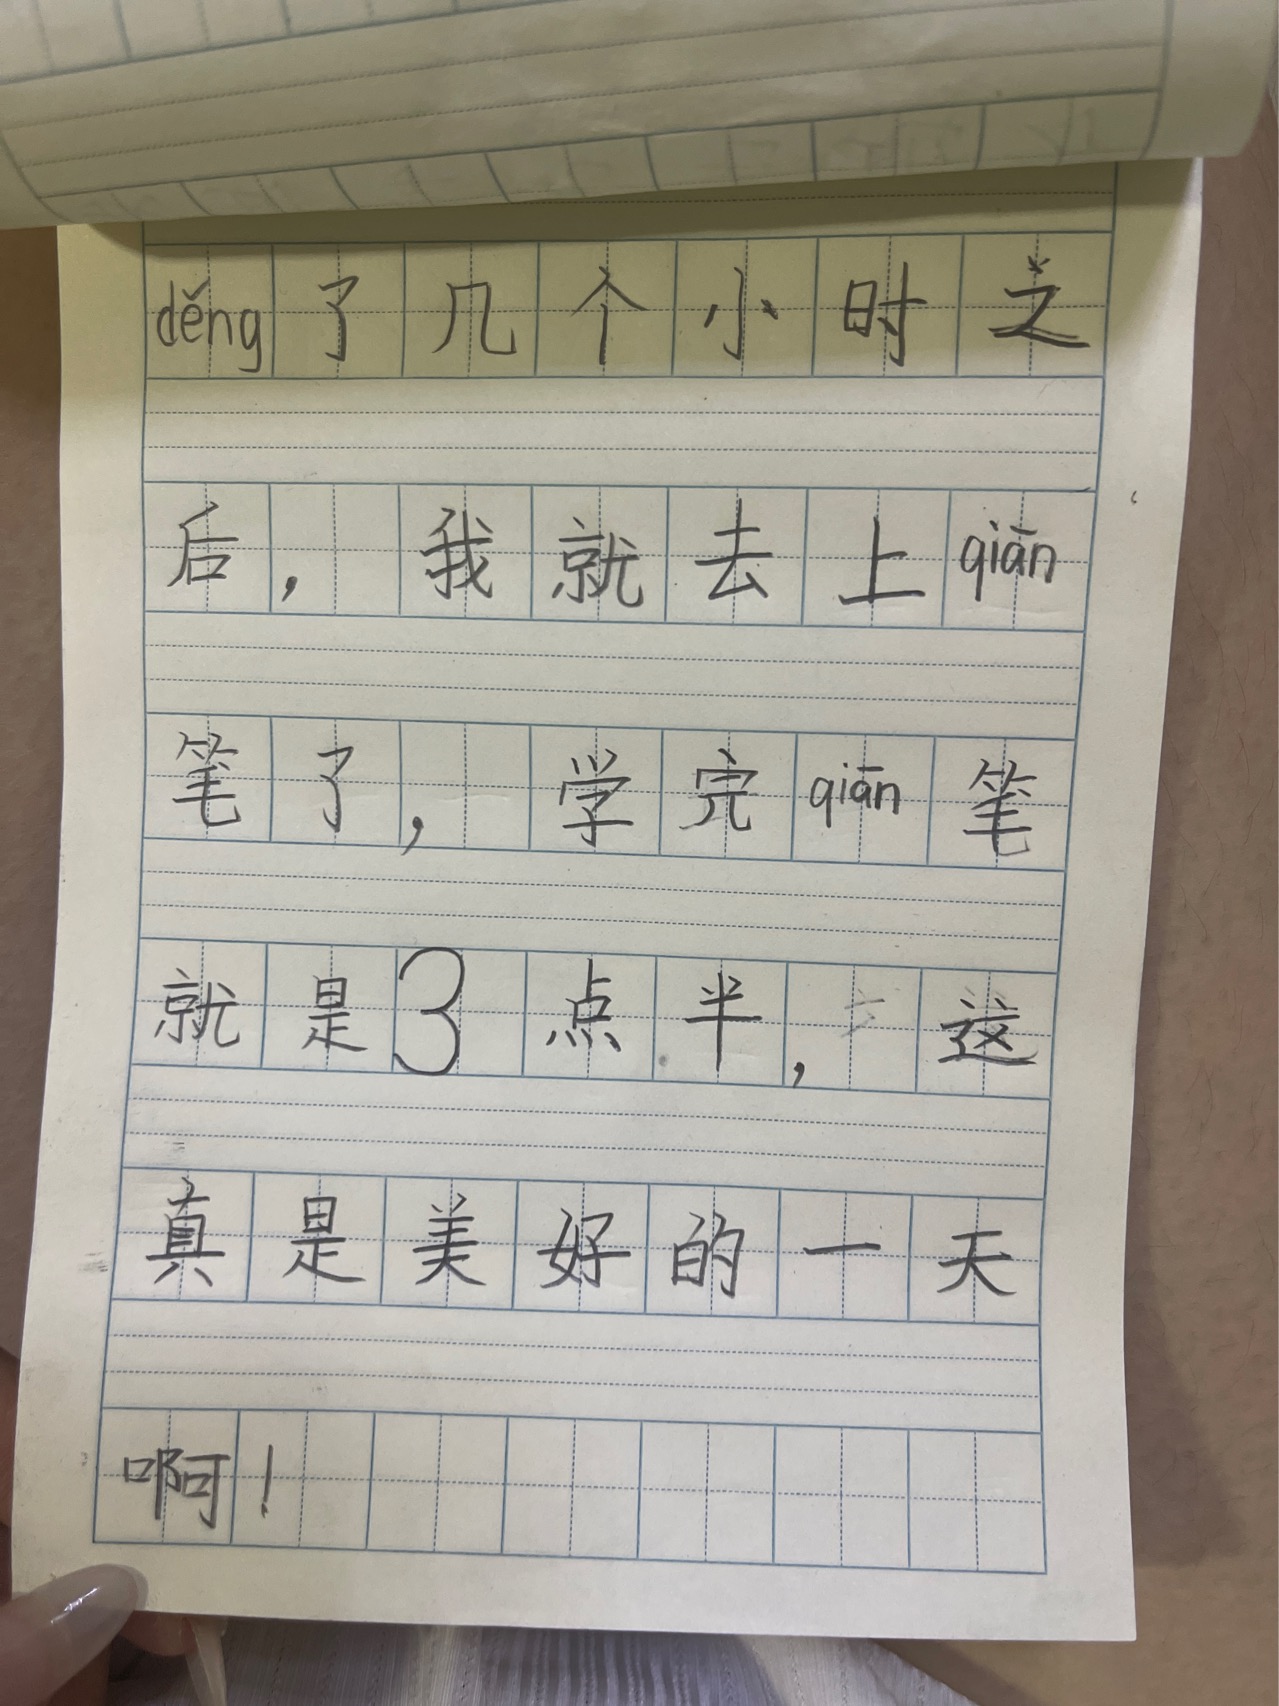 děng了几个小时之
后，我就去上qiān
笔了，学完qiān笔
就是3点半，这
真是美好的一天
啊！